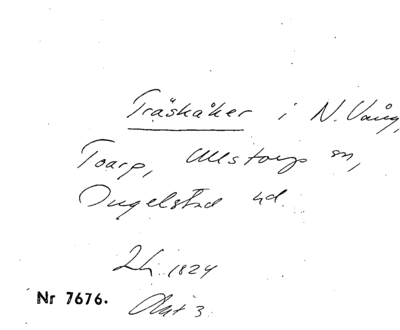 Träskåker i N. Vång,
Toarp, Ullstorps sn,
Ingelstad hd.
Lh. 1824
Nr 7676. Akt 3.